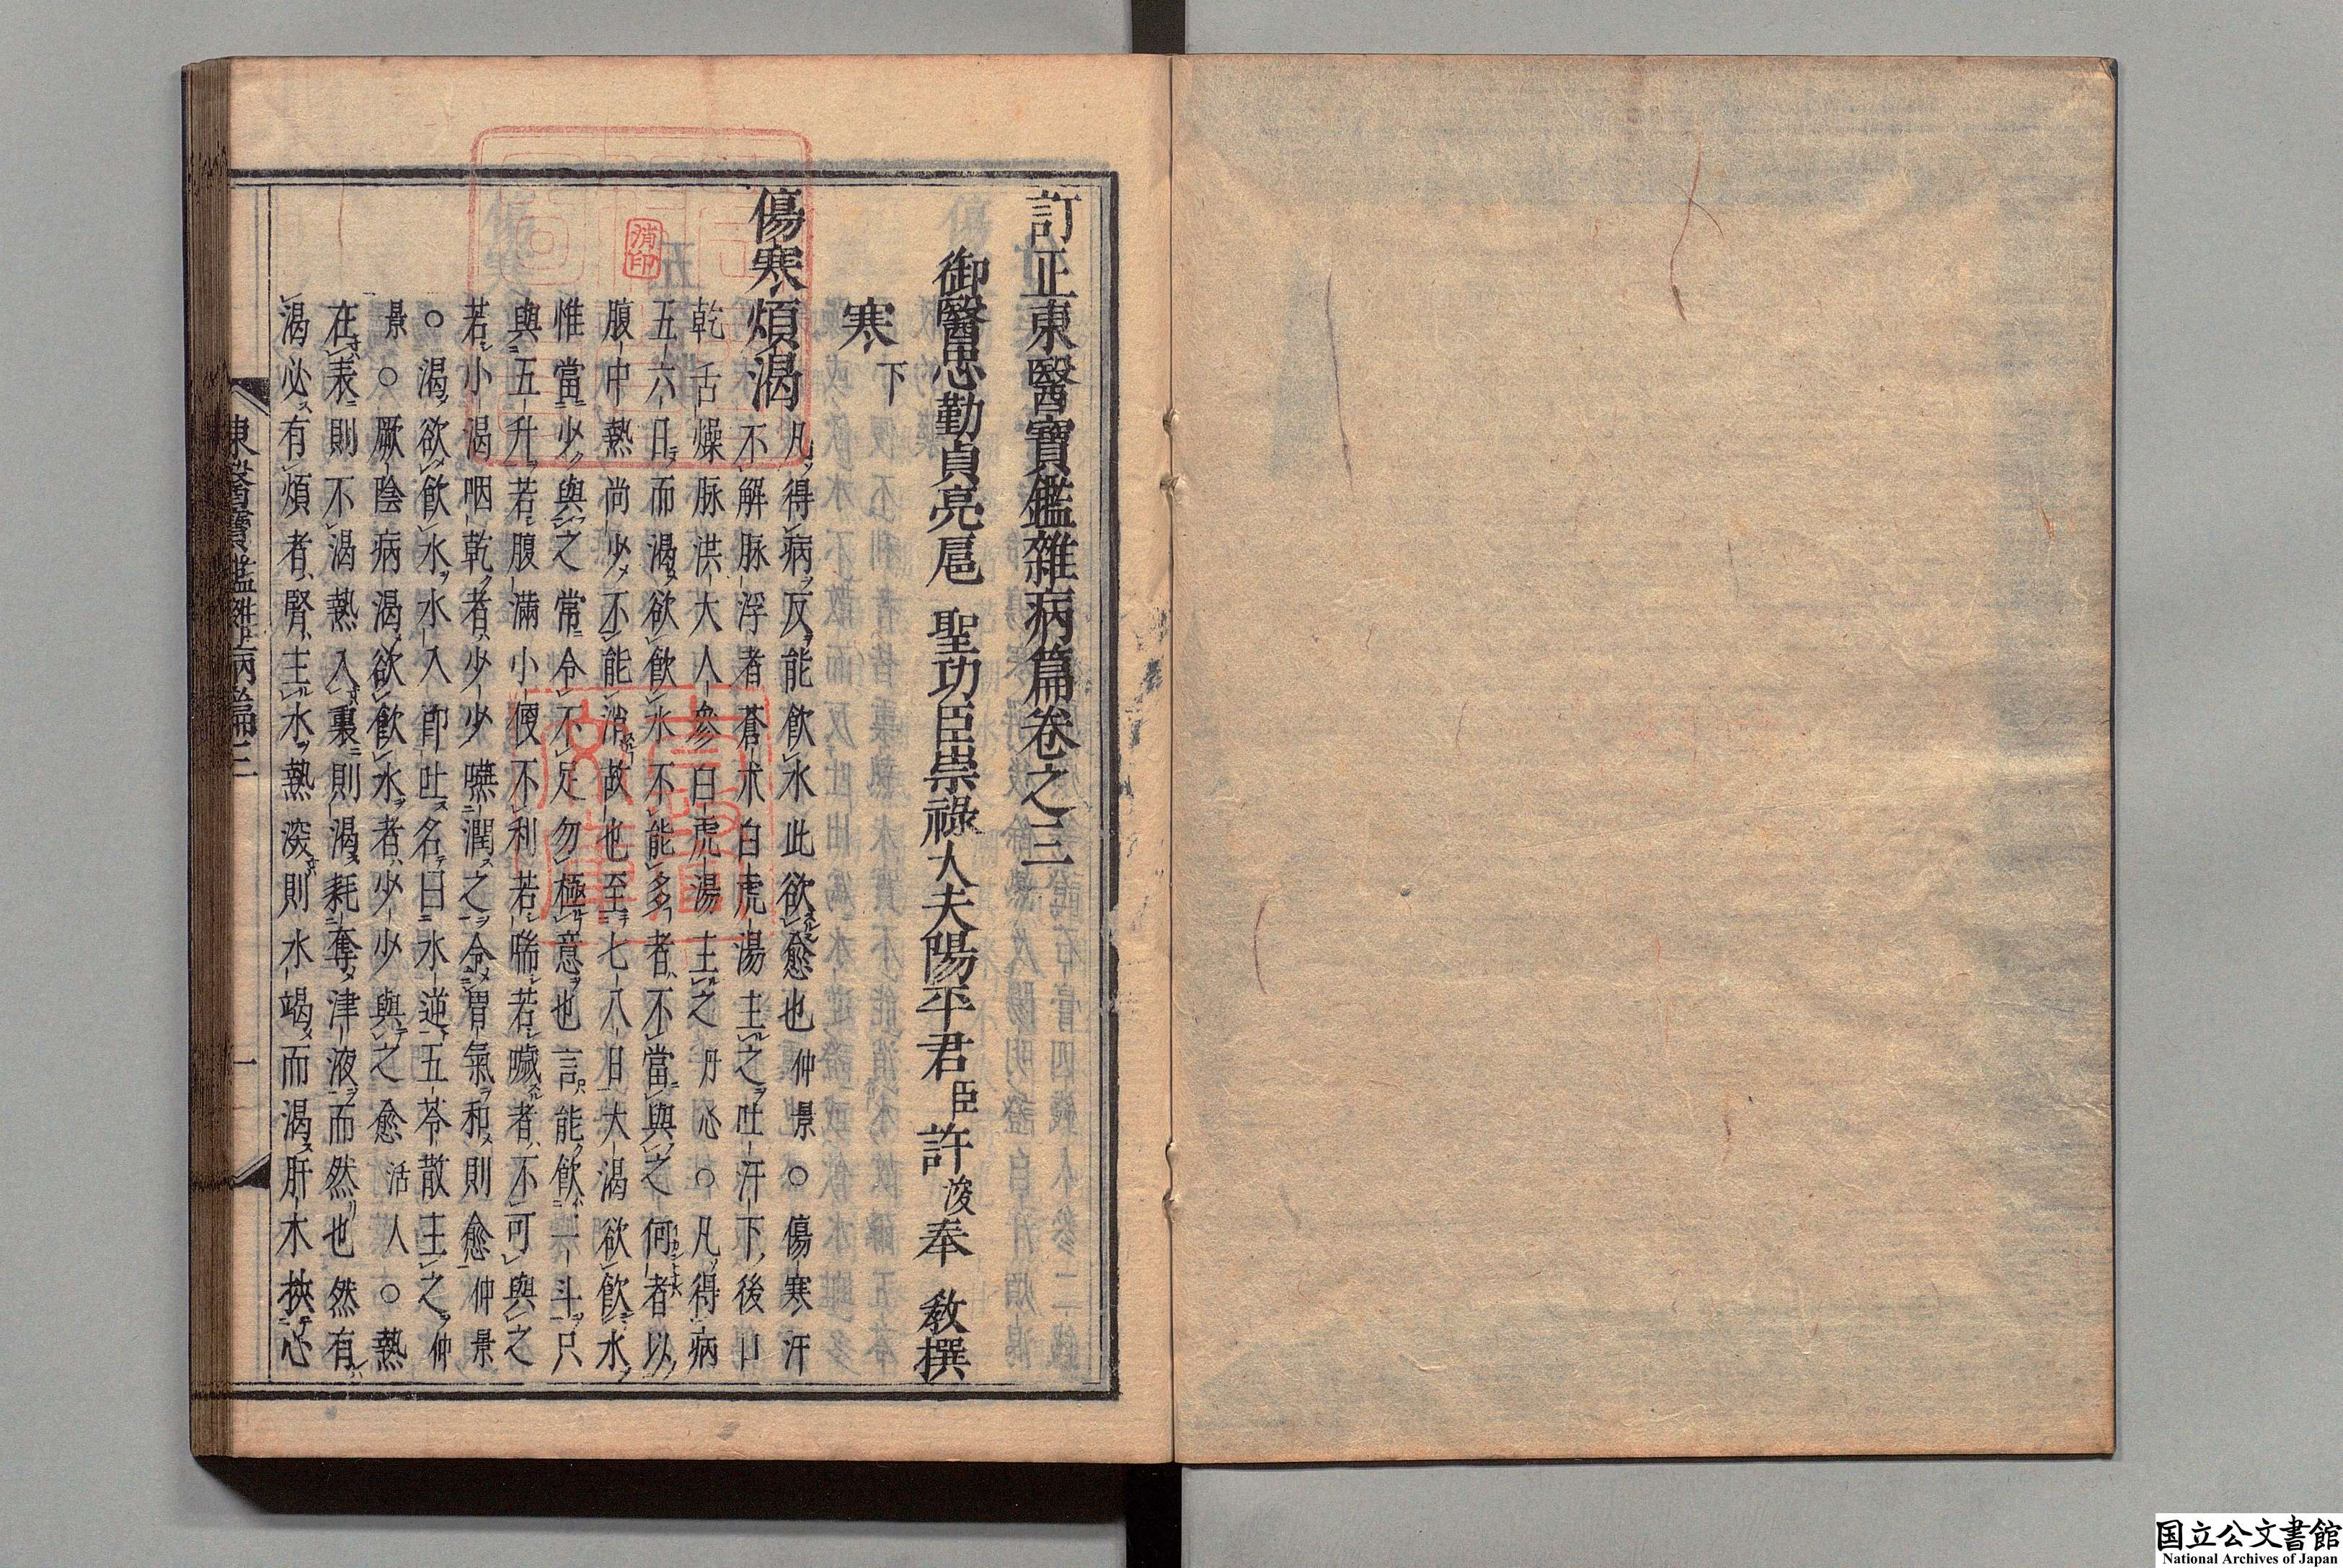 訂正東醫寶鑑雜病篇卷之三
御醫忠勤貞亮扈 聖功臣崇祿大夫陽平君臣許浚奉 教撰
寒下
傷寒煩渴凡得病反能飲水此欲愈也仲景○傷寒汗
不解脉浮者蒼朮白虎湯主之吐汗下後口
乾舌燥脉洪大人參白虎湯主之丹心○凡得病
五六日而渴欲飲水不能多者不當與之何者以
腹中熱尚少不能消故也至七八日大渴欲飲水
惟當少與之常令不足勿極意也言能飲一斗只
與五升若腹滿小便不利若喘若噦者不可與之
若小渴咽乾者少少嚥潤之令胃氣和則愈仲景
○渴欲飲水水入卽吐名曰水逆五苓散主之仲
景○厥陰病渴欲飲水者少少與之愈活人○熱
在表則不渴熱入裏則渴耗奪津液而然也然有
渴必有煩者腎主水熱深則水竭而渴肝木挾心
東醫寶鑑雜病篇三
一
消印
国立公文書館
National Archives of Japan